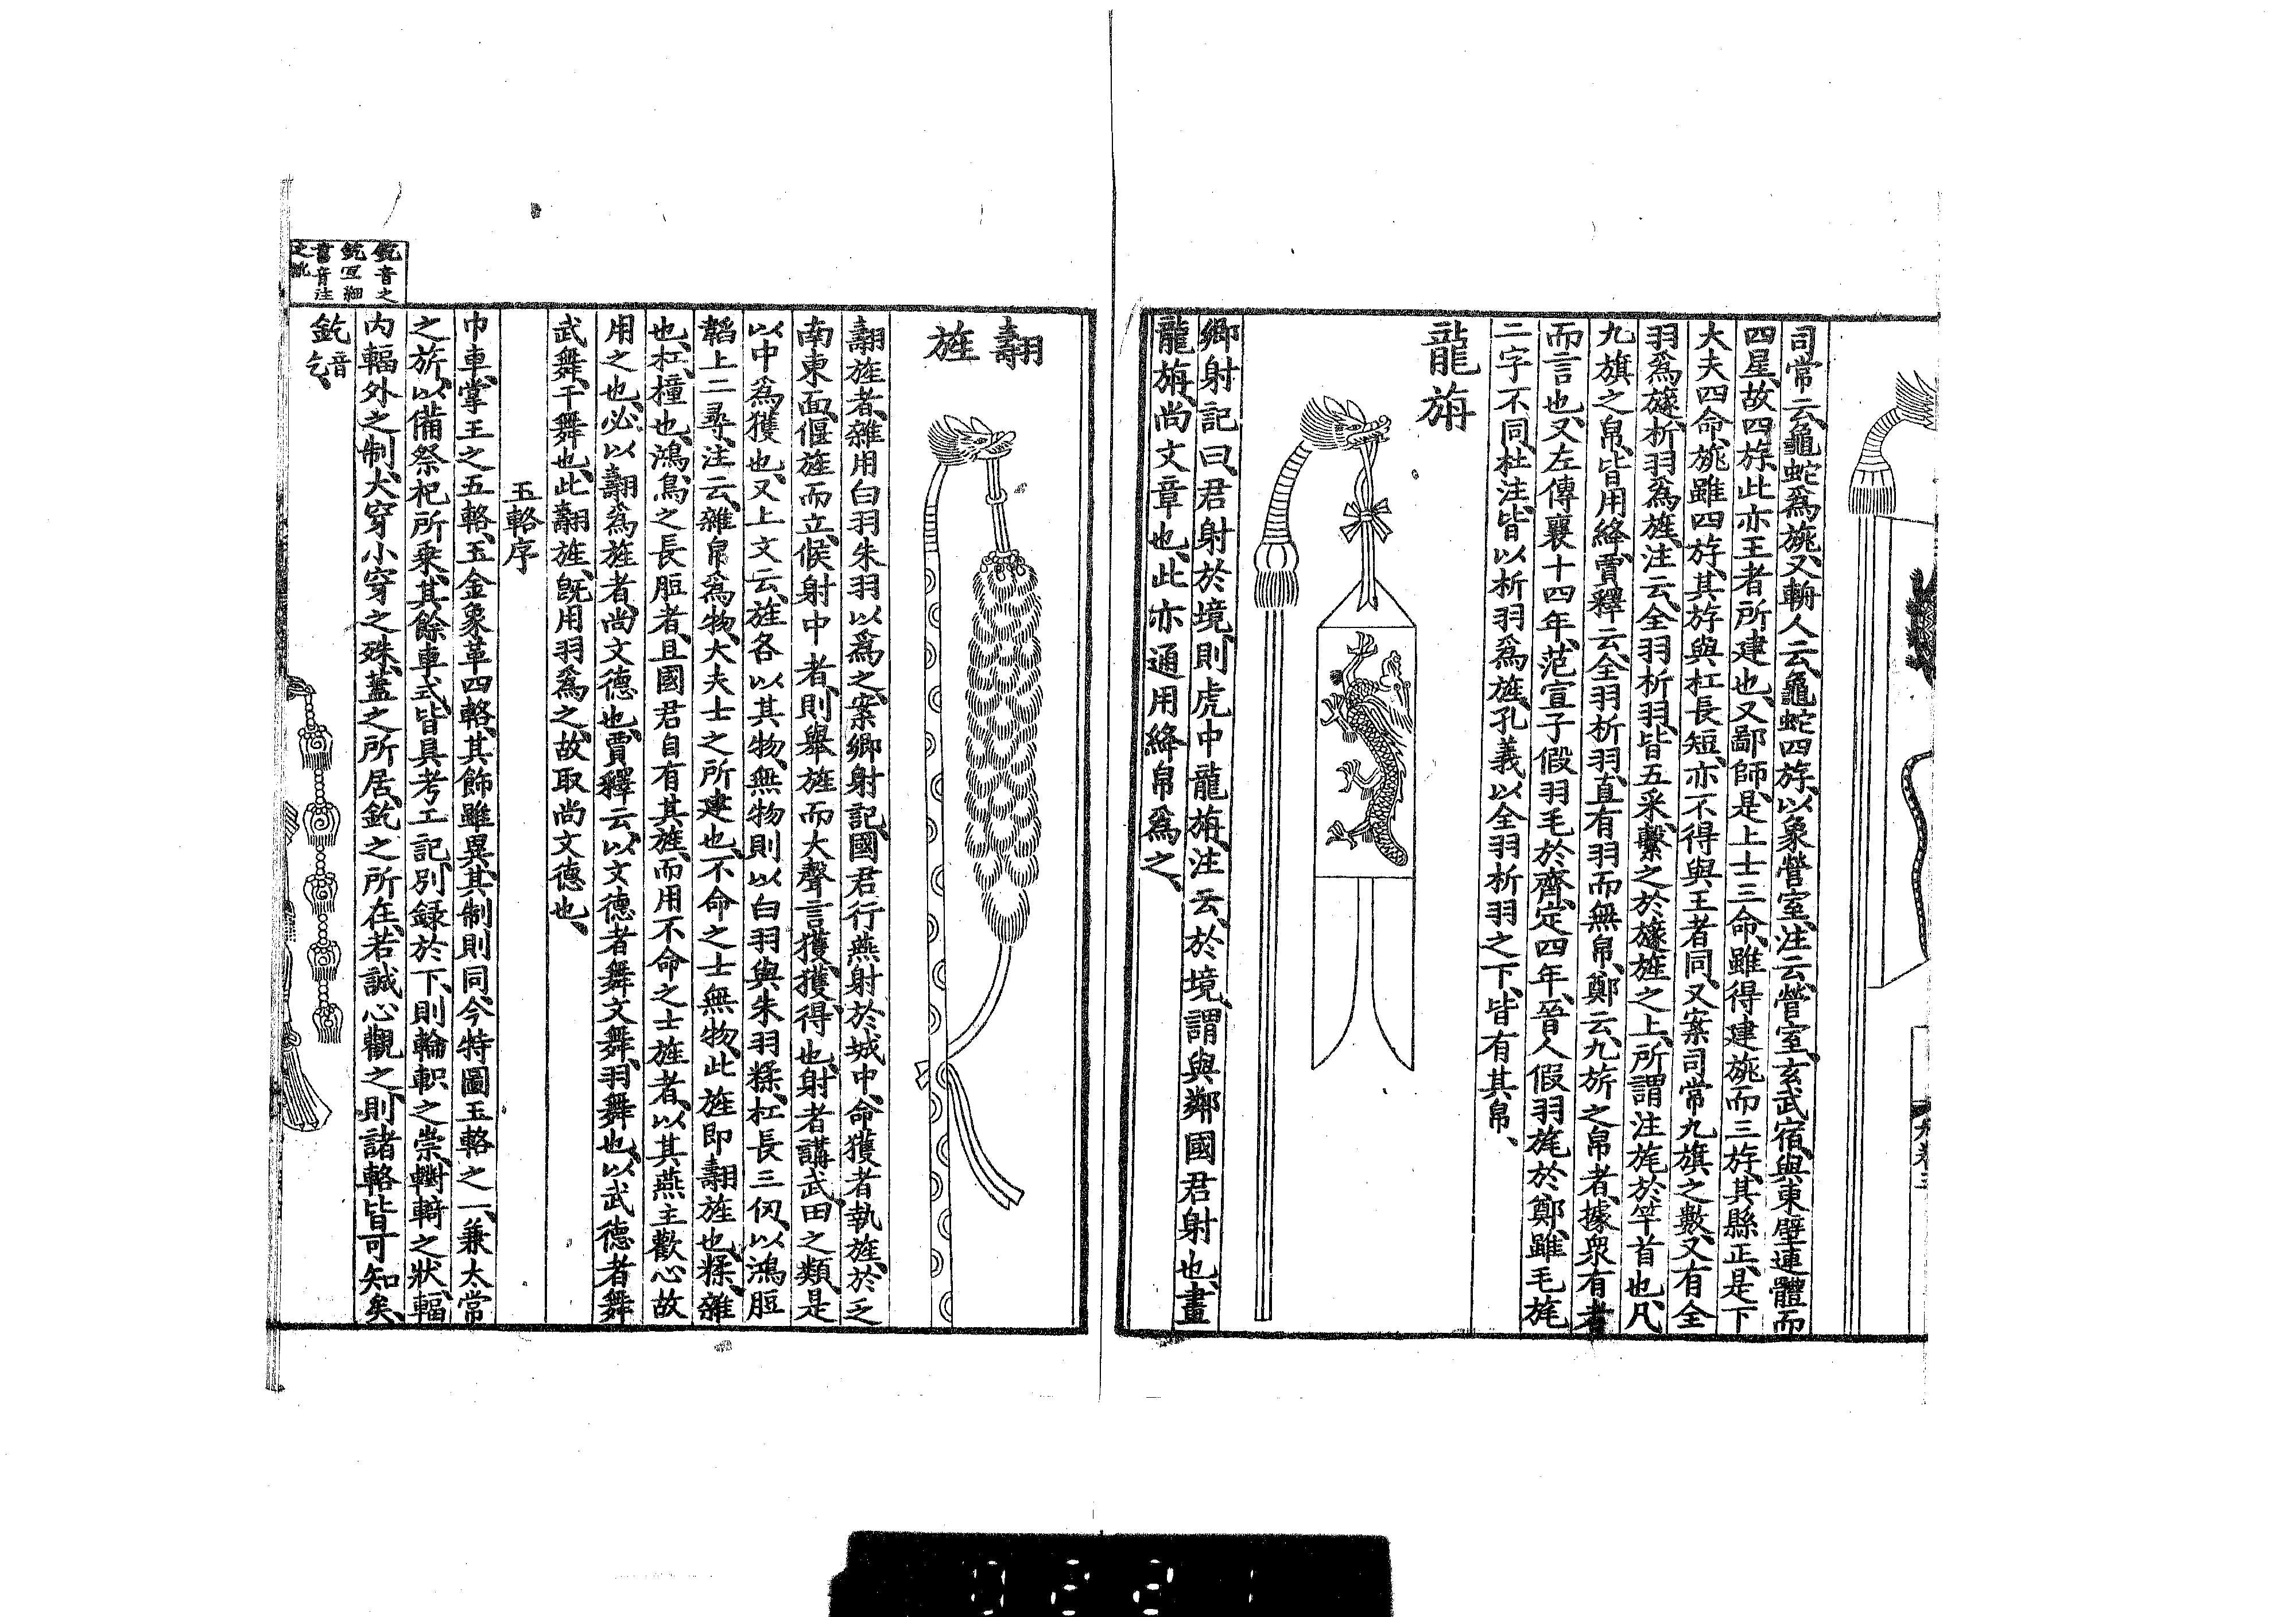 司常云、龜蛇爲旐、又輈人云、龜蛇四斿、以象營室、注云、營室、玄武宿、與東壁連體而
四星、故四斿、此亦王者所建也、又鄙師、是上士三命、雖得建旐而三斿、其縣正、是下
大夫四命、旐雖四斿、其斿與杠長短、亦不得與王者同、又案司常九旗之數、又有全
羽爲旞、析羽爲旌、注云、全羽析羽、皆五采、繫之於旞旌之上、所謂注旄於竿首也、凡
九旗之帛、皆用絳、賈釋云、全羽析羽、直有羽而無帛、鄭云、九旂之帛者、據衆有者
而言也、又左傳襄十四年、范宣子假羽毛於齊、定四年、晉人假羽旄於鄭、雖毛旄
二字不同、杜注、皆以析羽爲旌、孔義以全羽析羽之下、皆有其帛、
龍旃
鄉射記曰、君射於境、則虎中龍旃、注云、於境、謂與鄰國君射也、畫
龍旃、尚文章也、此亦通用絳帛爲之、
翿旌
翿旌者、雜用白羽朱羽以爲之、案鄉射記、國君行燕射於城中、命獲者執旌、於乏
南東面、偃旌而立、候射中者、則舉旌而大聲言獲、獲、得也、射者講武、田之類、是
以中爲獲也、又上文云、旌各以其物、無物則以白羽與朱羽糅、杠長三仞、以鴻脰
韜上二尋、注云、雜帛爲物、大夫士之所建也、不命之士無物、此旌即翿旌也、糅、雜
也、杠、橦也、鴻、鳥之長脰者、且國君自有其旌、而用不命之士旌者、以其燕主歡心故
用之也、必以翿爲旌者、尚文德也、賈釋云、以文德者舞文舞、羽舞也、以武德者舞
武舞、干舞也、此翿旌、旣用羽爲之、故取尚文德也、
玉輅序
巾車、掌王之五輅、玉金象革四輅、其飾雖異、其制則同、今特圖玉輅之一、兼太常
之旂、以備祭祀所乘、其餘車式、皆具考工記、別録於下、則輪軹之崇、轛輢之狀、輻
内輻外之制、大穿小穿之殊、蓋之所居、釳之所在、若誠心觀之、則諸輅皆可知矣、
釳音乞、
釳音之
釳宜細
書音注
之訛